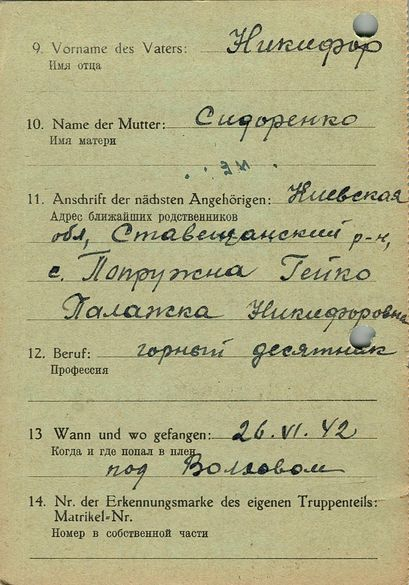 9. Vorname des Vaters: Никифор
Имя отца
10. Name der Mutter: Сидоренко
Имя матери
11. Anschrift der nächsten Angehörigen: Киевская
Адрес ближайших родственников
обл, Ставещанский р-н,
с. Попружна Гейко
Палажка Никифоровна
12. Beruf: горный десятник
Профессия
13 Wann und wo gefangen: 26.VI.42
Когда и где попал в плен
под Волховом
14. Nr. der Erkennungsmarke des eigenen Truppenteils:
Matrikel-Nr.
Номер в собственной части